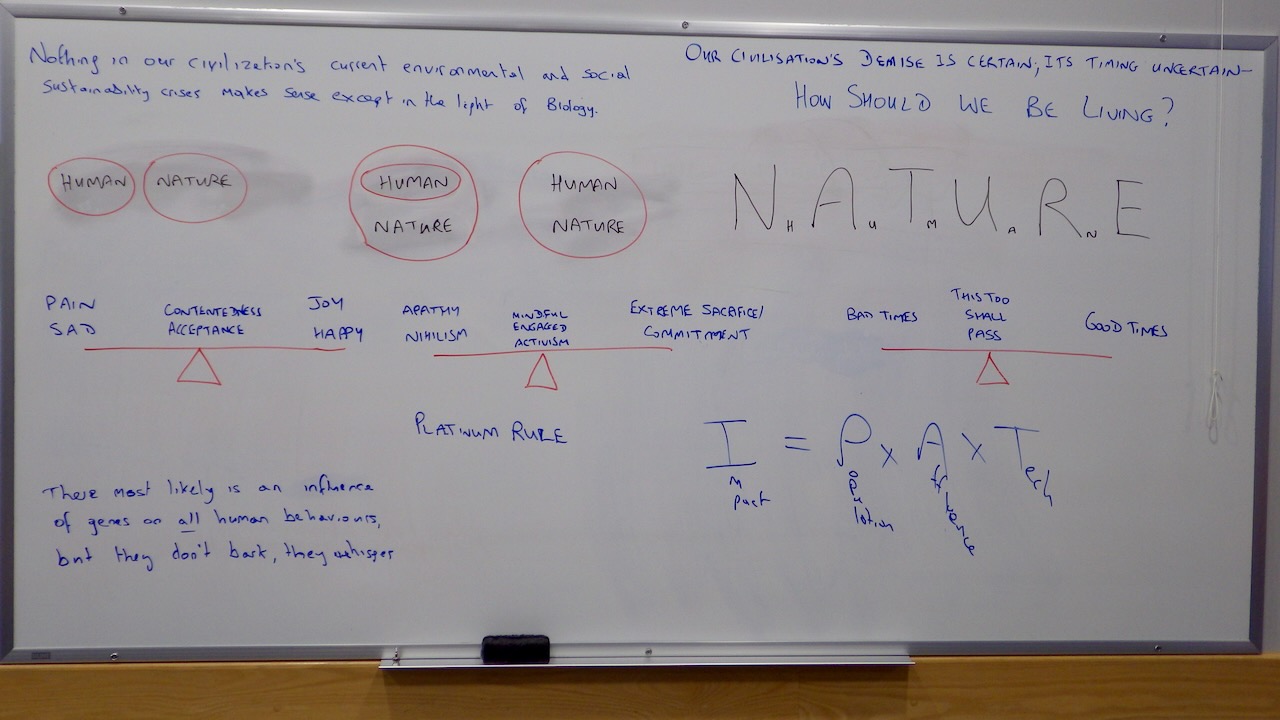 Nothing in our civilization's current environmental and social
sustainability crises makes sense except in the light of Biology.
OUR CIVILISATION'S DEMISE IS CERTAIN, ITS TIMING UNCERTAIN-
HOW SHOULD WE BE LIVING?
HUMAN NATURE
HUMAN
NATURE
HUMAN
NATURE
N H A U T M U A R N E
PAIN
SAD
CONTENTEDNESS
ACCEPTANCE
JOY
HAPPY
APATHY
NIHILISM
MINDFUL
ENGAGED
ACTIVISM
EXTREME SACRIFICE/
COMMITMENT
BAD TIMES
THIS TOO
SHALL
PASS
GOOD TIMES
PLATINUM RULE
I = P x A x Tech
mpact
opulation
ffluence
There most likely is an influence
of genes on all human behaviours,
but they don't bark, they whisper